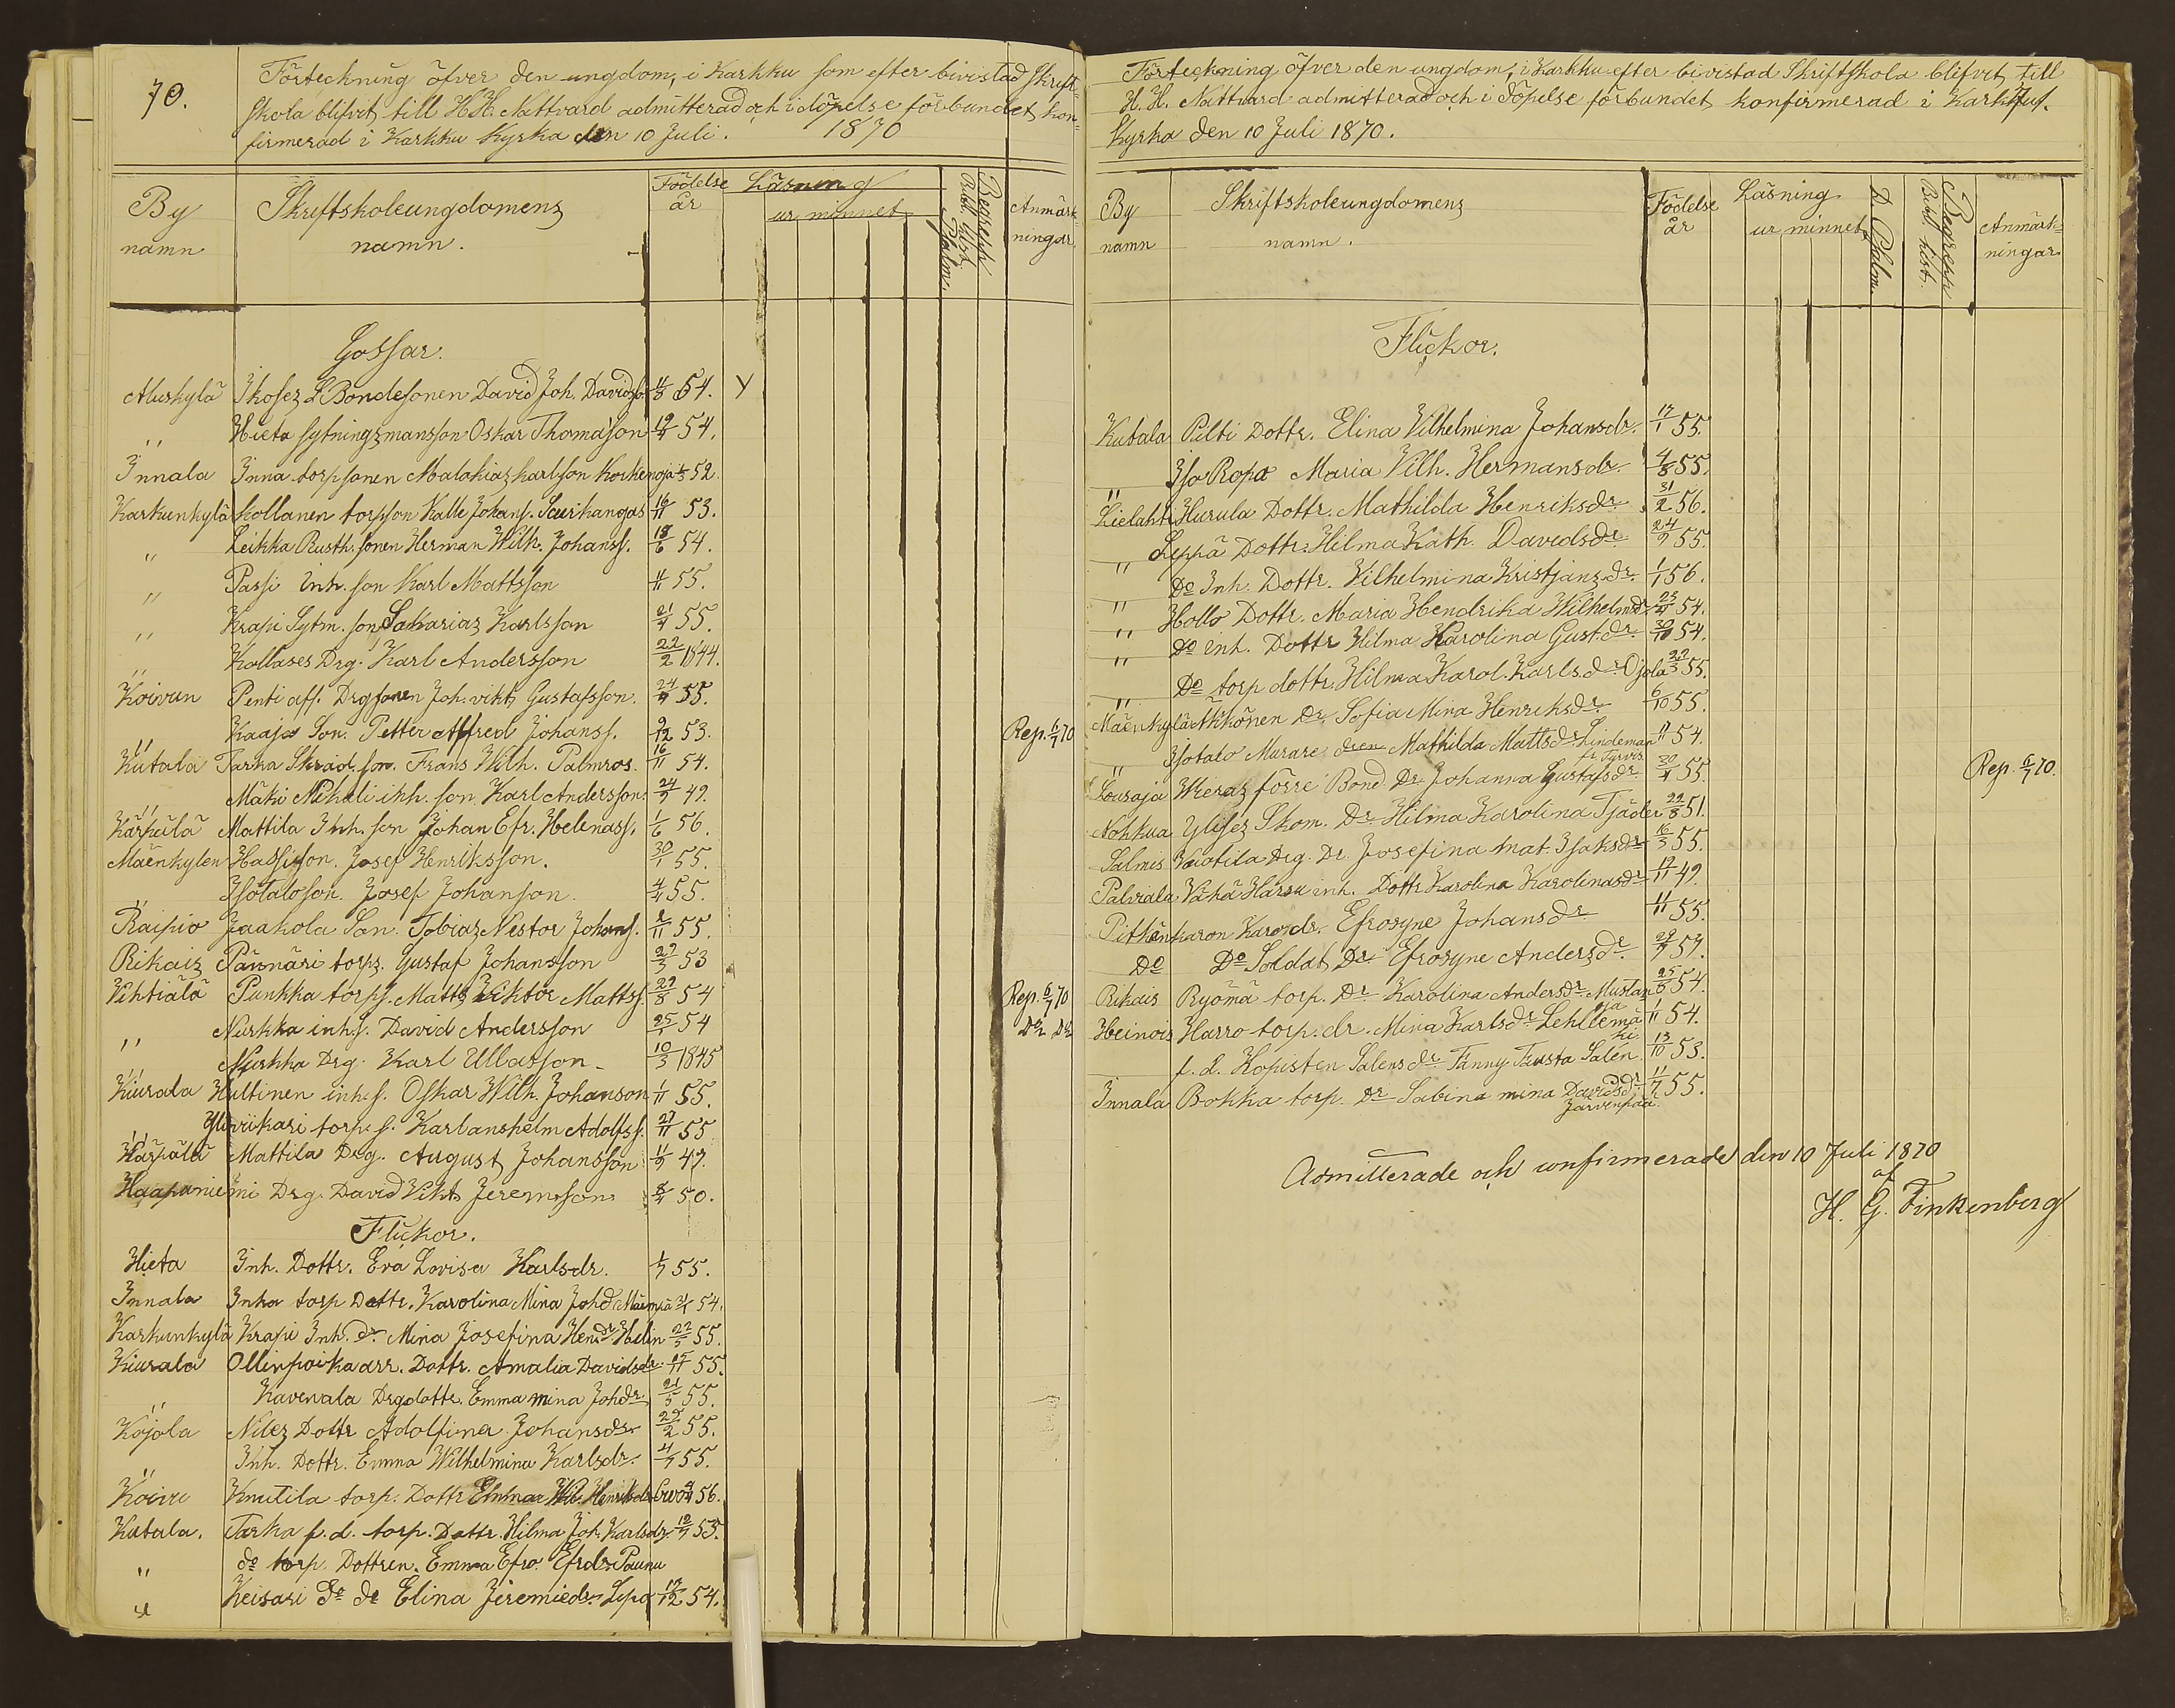 70.
Förteckning öfver den ungdom, i Karkku som efter bivistad Skrift-
skola blifvit till H.H. Nattvard admitterad och i döpelse förbundet kon-
firmerad i Karkku Kyrka den 10 Juli. 1870
By namn Skriftskoleungdomens namn. Födelse år Läsning ur minnet Psalm. Bibl. hist. Begrepp Anmärk-ningar
Gossar.
Aluskylä Skofez L Bondesonen David Joh. Davidss. 11/8 54. Y
" Hieta sytningzmansson Oskar Thomasson 19/4 54.
Innala Inna torpsonen Malakiaz Karlsson Korkenoja 52.
Karkunkylä Kollanen torpson Kalle Johans. Saurkangas 16/11 53.
" Leikka Rusth. sonen Herman Wilh. Johanss. 18/6 54.
" Passi inh. son Karl Mattsson 4/11 55.
" Krapi Sytm. son Sakariaz Karlsson 21/4 55.
" Kollases Drg. Karl Andersson 22/2 1844.
Koivun Penti aff. Drgsonen Joh. vikt. Gustafsson. 24/4 55.
" Kaaja Son. Petter Alfred Johanss. 9/12 53. Rep. 6/7 70
Kutala Tarka Skräd. son. Frans Wilh. Palmros. 16/11 54.
" Mäki Nikuli inh. son Karl Andersson. 24/2 49.
Kärpälä Mattila Inh. son Johan Efr. Helenass. 1/6 56.
Mäenkylen Hassi son. Josef Henriksson. 30/1 55.
" Isotalo son. Josef Johanson. 4/4 55.
Raipio Jaakola Son. Tobiaz Nestor Johans. 8/11 55.
Rikaiz Pännäri torps. Gustaf Johansson 27/3 53
Vihtiälä Punkka torps. Matts Viktor Mattss. 29/8 54 Rep. 6/7 70
" Nurkka inh. s. David Andersson 25/1 54 Do Do
" Nurkka Drg. Karl Ullasson 10/3 1845
Kiurala Hiltinen inh. s. Oskar Wilh. Johanson 1/11 55.
" Yliviikari torp. s. Karl anshelm Adolfss. 27/11 55
Kärpälä Mattila Drg. August Johansson 11/9 49.
Haapaniemi Drg. David Vikt. Jeremsson 8/4 50.
Flickor.
Hieta Inh. Dottr. Eva Lovisa Karlsdr. 1/7 55.
Innala Inha torp Dottr. Karolina Mina Johd. 54.
Karkunkylä Krapi Inh. dr Mina Josefina Hendr Helin 22/5 55.
Kiurala Ollinpoika arr. Dottr. Amalia Davidsdr. 55.
" Kavenala Drg dottr. Emma mina Johdr. 21/5 55.
Kojola Nilez Dottr Adolfina Johansdr 29/2 55.
" Inh. Dottr. Emma Wilhelmina Karlsdr. 4/7 55.
Koivu Knutila torp. Dottr Emma Wil. Henriksdr 56.
Kutala. Tarka f.d. torp. Dottr. Hilma Joh. Karlsdr. 53.
" do torp. Dottren. Emma Efro. Efrdr. Paunu
" Keisari do do Elina Jeremiedr. Lepa 17/12 54.
Förteckning öfver den ungdom, i Karkku efter bivistad Skriftskola blifvit till
H. H. Nattvard admitterad och i döpelse förbundet konfirmerad i Karkku.
Kyrka den 10 Juli 1870.
By namn Skriftskoleungdomens namn. Födelse år Läsning ur minnet D. Psalm. Bibl. hist. Begrepp Anmärk-ningar
Flickor.
Kutala Pilti Dottr. Elina Vilhelmina Johansdr. 17/1 55.
" Iso Ropa Maria Vilh. Hermansdr 4/8 55.
Lielahti Hurula Dottr. Mathilda Henriksdr. 31/2 56.
" Leppä Dottr. Hilma Kath. Davidsdr. 24/7 55.
" Do Inh. Dottr. Vilhelmina Kristjanzdr. 1/1 56.
" Hollo Dottr. Maria Hendrika Wilhelmdr. 54.
" Do inh. Dottr Hilma Karolina Gust.dr. 30/10 54.
" Do torp dottr. Hilma Karol. Karlsdr. Ojola 27/3 55.
Mäenkylä Akkönen Dr. Sofia Mina Henriksdr. 6/10 55.
" Isotalo Murare dren Mathilda Mattsdr Lindeman 54.
fr. Tyrvis.
Sousaja Wieraz förre Bond. Dr. Johanna Gustafsdr. 30/4 55. Rep. 6/7 70.
Nohkua Ylisez Skom. Dr Hilma Karolina Tjäder 22/8 51.
Salmis Knotila Drg. Dr. Josefina mat. Isaksdr. 16/3 55.
Palviala Vähä Harsu inh. Dottr Karolina Karolinasdr. 49.
Pitkänkaron Karo dr. Efrosyne Johansdr 11/11 55.
Do Do Soldat, Dr Efrosyne Andersdr. 54.
Rikais Ryömä torp. Dr Karolina Andersdr Mustan 25/6 54.
ja
Heinois Harro torp. dr. Mina Karlsdr Lehlemä 1/11 54.
ki
f. d. Kopisten Salensdr Fanny Fausta Salén. 13/10 53.
Innala Bokka torp. Dr Sabina mina Davidsdr 11/7 55.
Järvenpää.
Admitterade och confirmerade den 10 Juli 1870
af
H. G. Finkenberg